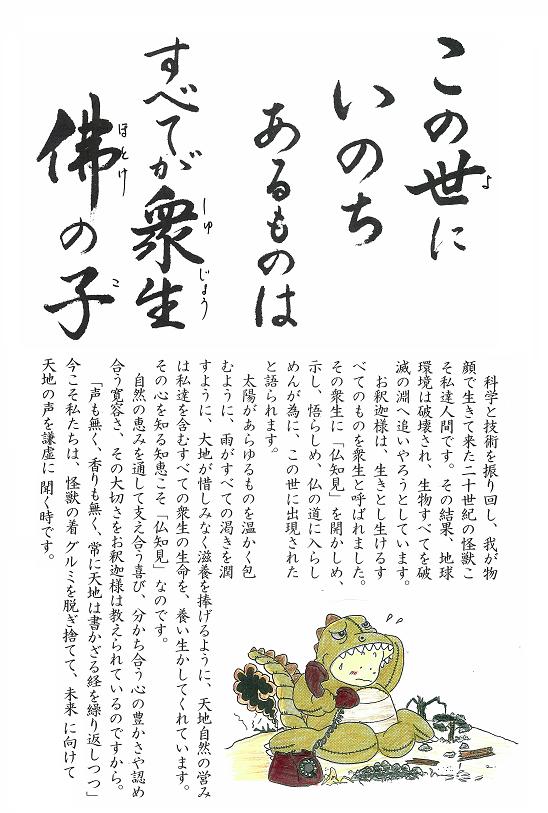 この世に
いのち
あるものは
すべてが衆生
佛の子
よ
しゅじょう
ほとけ
こ
科学と技術を振り回し、我が物
顔で生きて来た二十世紀の怪獣こ
そ私達人間です。その結果、地球
環境は破壊され、生物すべてを破
滅の淵へ追いやろうとしています。
お釈迦様は、生きとし生けるす
べてのものを衆生と呼ばれました。
その衆生に「仏知見」を開かしめ、
示し、悟らしめ、仏の道に入らし
めんが為に、この世に出現された
と語られます。
太陽があらゆるものを温かく包
むように、雨がすべての渇きを潤
すように、大地が惜しみなく滋養を捧げるように、天地自然の営み
は私達を含むすべての衆生の生命を、養い生かしてくれています。
その心を知る知恵こそ「仏知見」なのです。
自然の恵みを通して支え合う喜び、分かち合う心の豊かさや認め
合う寛容さ、その大切さをお釈迦様は教えられているのですから。
「声も無く、香りも無く、常に天地は書かざる経を繰り返しつつ」
今こそ私たちは、怪獣の着グルミを脱ぎ捨てて、未来に向けて
天地の声を謙虚に聞く時です。